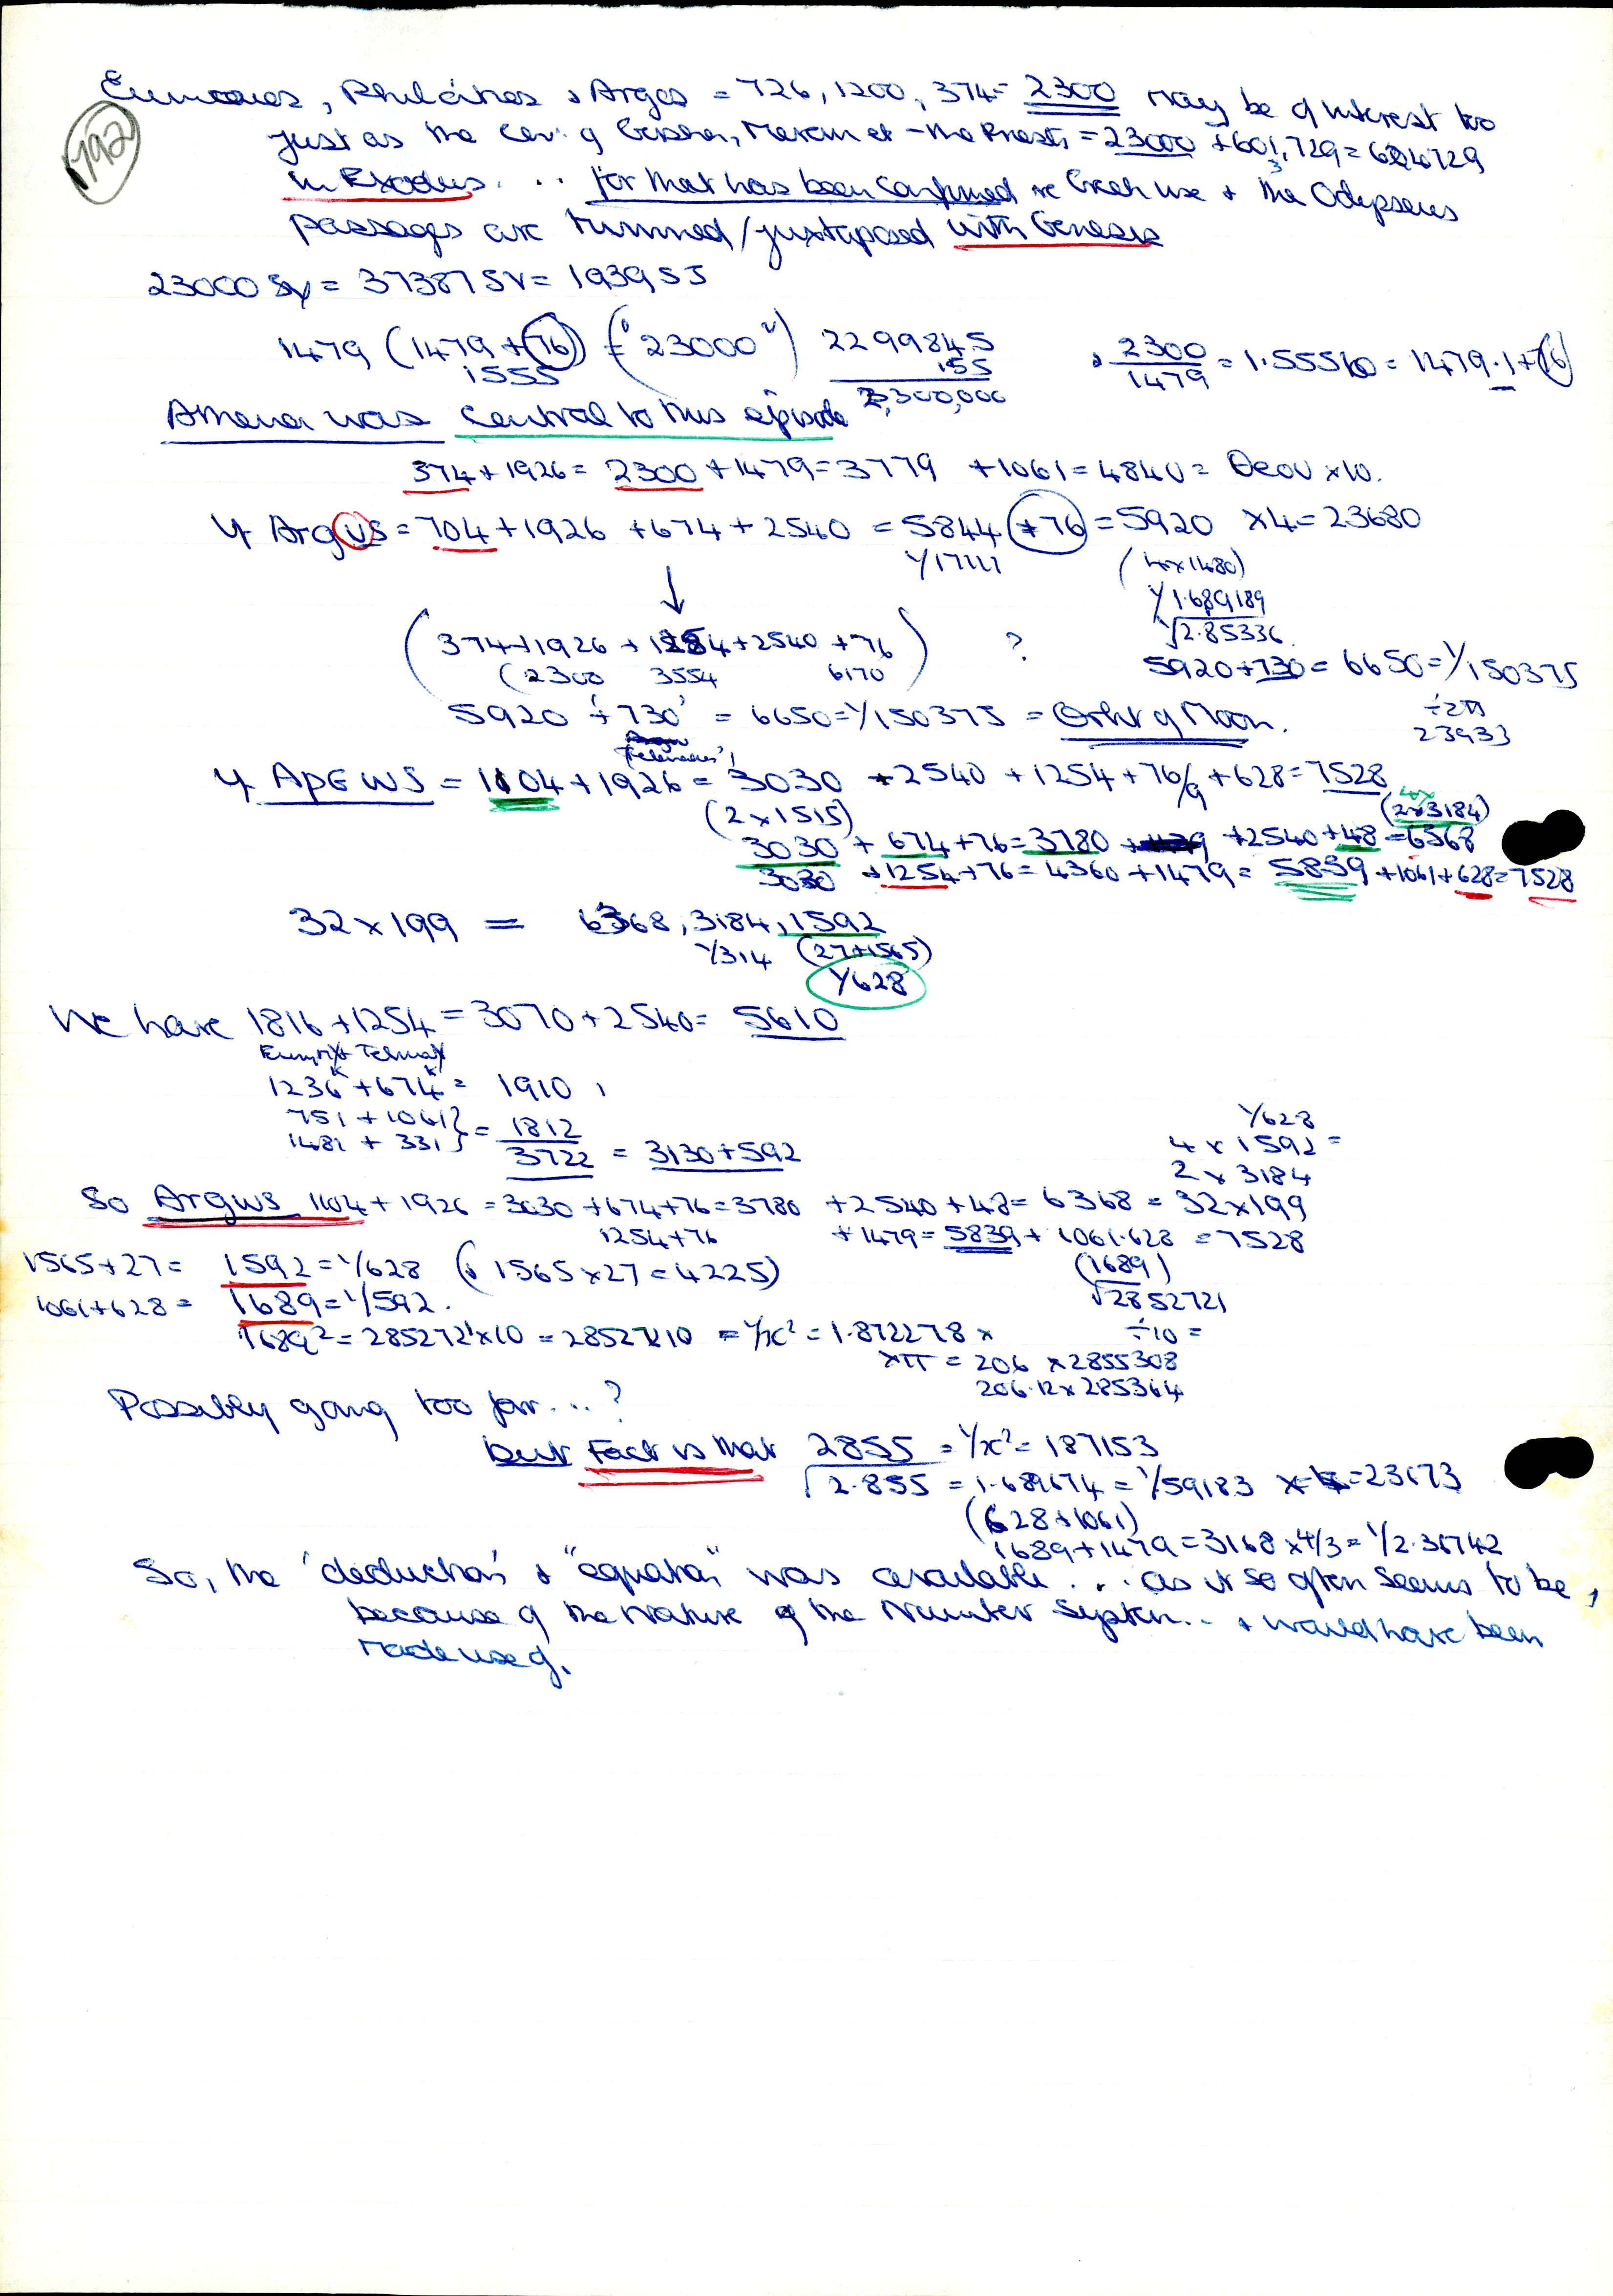 1792
Eumaeus, Philoitios & Argos = 726, 1200, 374 = 2300 may be of interest too
just as the of Gershon, Merari et - the Priests = 23000 + 601,729 = 624729
in Exodus... for that has been confirmed re Greek use & the Odysseus
passages are twinned/juxtaposed with Genesis
23000 Sy = 37387 SV = 1939 SJ
1479 (1479 + 76) (= '23000') 2299845
1555 155
2,300,000
& 2300/1479 = 1.55510 = 1479.1 + 76
was central to this episode
374 + 1926 = 2300 + 1479 = 3779 + 1061 = 4840 = θεου x 10.
If Argus = 704 + 1926 + 674 + 2540 = 5844 + 76 = 5920 x 4 = 23680
1/17111 (4x1480)
1/1.689189
√2.85336
(374 + 1926 + 1254 + 2540 + 76) ?
(2300 3554 6170
5920 + 730 = 6650 = 1/150375
÷ 2π
23933
5920 + '730' = 6650 = 1/150375 = Orbit of Moon.
If ΑρGWS = 1104 + 1926 = 3030 + 2540 + 1254 + 76/9 + 628 = 7528
(2 x 1515) (2x3184)
3030 + 674 + 76 = 3780 + 2540 + 48 = 6368
3030 + 1254 + 76 = 4360 + 1479 = 5839 + 1061 + 628 = 7528
32 x 199 = 6368, 3184, 1592
1/314 (27+1565)
1/628
We have 1816 + 1254 = 3070 + 2540 = 5610
1236 + 674 = 1910
751 + 1061 } = 1812
1481 + 331
3722 = 3130 + 592
1/628
4 x 1592 =
2 x 3184
So Argws 1104 + 1926 = 3030 + 674 + 76 = 3780 + 2540 + 48 = 6368 = 32 x 199
1254 + 76 + 1479 = 5839 + 1061.628 = 7528
1565 + 27 = 1592 = 1/628 (& 1565 x 27 = 4225) (1689)
1061 + 628 = 1689 = 1/592. √2852721
1689² = 2852721 x 10 = 28527210 = 1/x² = 1.872278 x ÷ 10 =
xπ = 206 x 2855308
206.12 x 285364
Possibly going too far...?
but Fact is that 2855 = 1/x² = 187153
√2.855 = 1.689674 = 1/59183 x 4 = 23673
(628 + 1061)
1689 + 1479 = 3168 x 4/3 = 1/2.36742
So, the 'deduction' & "equation" was available... as it so often seems to be,
because of the Nature of the Number System... & would have been
made use of.